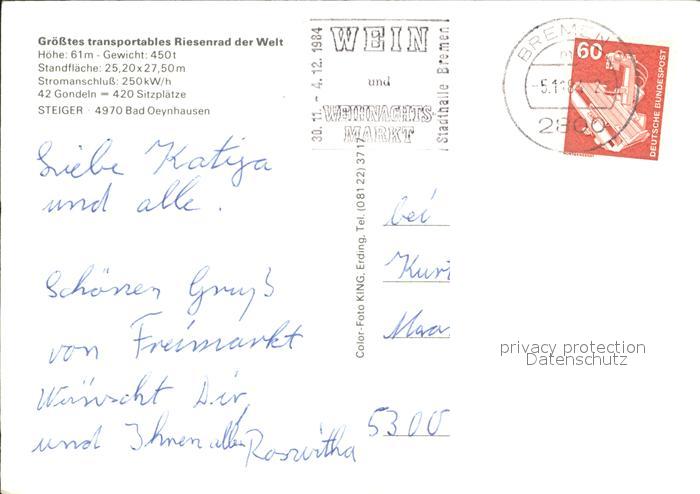 Größtes transportables Riesenrad der Welt
Höhe: 61m - Gewicht: 450t
Standfläche: 25,20x27,50m
Stromanschluß: 250kW/h
42 Gondeln = 420 Sitzplätze
STEIGER · 4970 Bad Oeynhausen
30.11. - 4.12.1984
WEIN
und
WEIHNACHTS-
MARKT
Stadthalle Bremen
BREMEN
2800
60
DEUTSCHE BUNDESPOST
Liebe Katija
und alle.
Schönen Gruß
von Freimarkt
Wünscht Dir,
und Ihnen allen Roswitha
Color-Foto KING, Erding, Tel. (08122) 3717
bei
Kurt
5300
privacy protection
Datenschutz